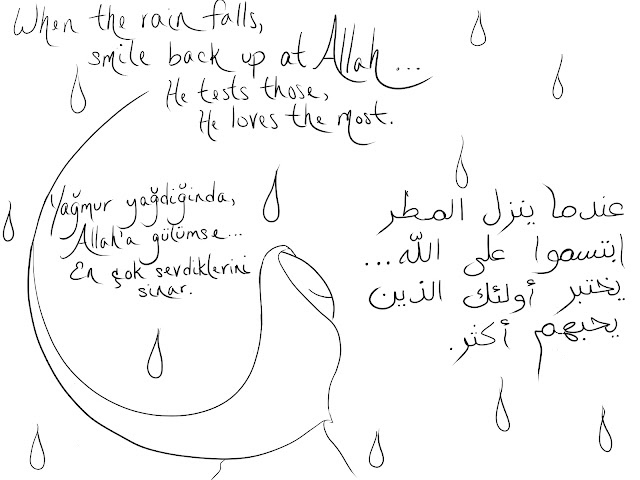 When the rain falls,
smile back up at Allah...
He tests those,
He loves the most.
Yağmur yağdığında,
Allah'a gülümse...
En çok sevdiklerini
sınar.
عندما ينزل المطر
ابتسموا على الله...
يختبر أولئك الذين
يحبهم أكثر.